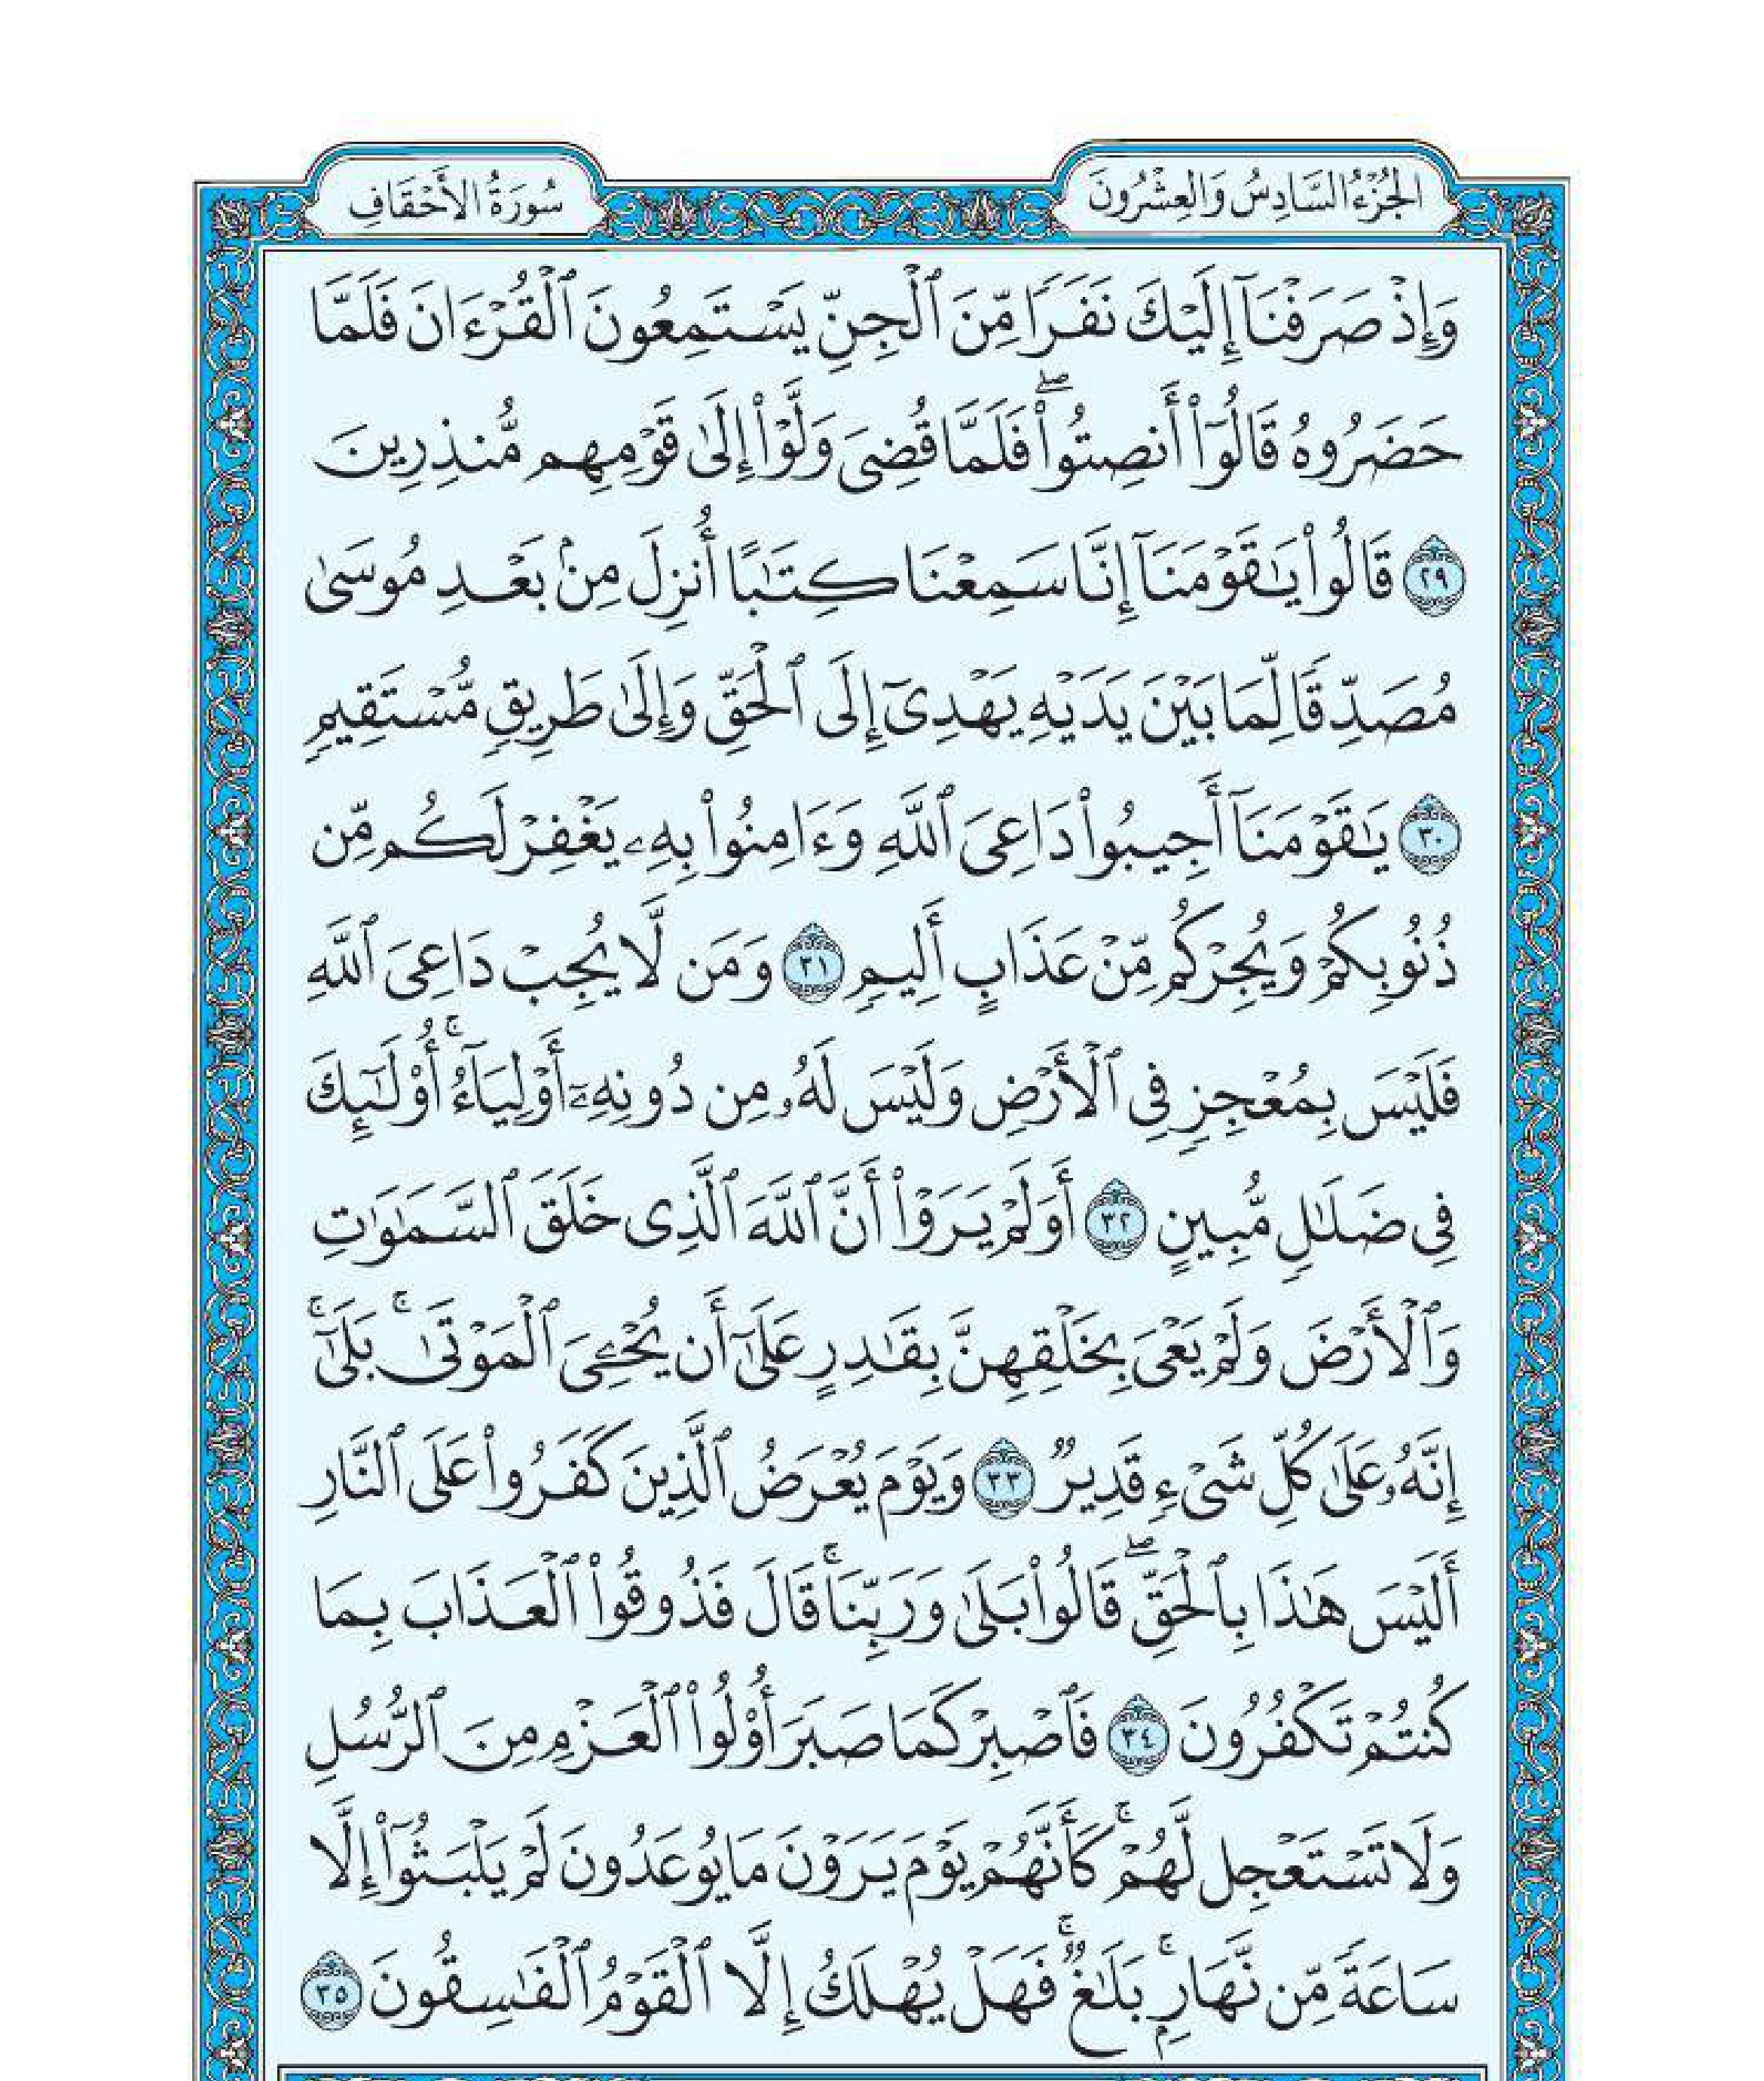 الجُزْءُ السَّادِسُ وَالعِشْرُونَ
سُورَةُ الأَحْقَافِ
وَإِذْ صَرَفْنَآ إِلَيْكَ نَفَرًا مِّنَ ٱلْجِنِّ يَسْتَمِعُونَ ٱلْقُرْءَانَ فَلَمَّا
حَضَرُوهُ قَالُوٓا۟ أَنصِتُوا۟ۖ فَلَمَّا قُضِىَ وَلَّوْا۟ إِلَىٰ قَوْمِهِم مُّنذِرِينَ
٢٩ قَالُوا۟ يَـٰقَوْمَنَآ إِنَّا سَمِعْنَا كِتَـٰبًا أُنزِلَ مِنۢ بَعْدِ مُوسَىٰ
مُصَدِّقًا لِّمَا بَيْنَ يَدَيْهِ يَهْدِىٓ إِلَى ٱلْحَقِّ وَإِلَىٰ طَرِيقٍ مُّسْتَقِيمٍ
٣٠ يَـٰقَوْمَنَآ أَجِيبُوا۟ دَاعِىَ ٱللَّهِ وَءَامِنُوا۟ بِهِۦ يَغْفِرْ لَكُم مِّن
ذُنُوبِكُمْ وَيُجِرْكُم مِّنْ عَذَابٍ أَلِيمٍ ٣١ وَمَن لَّا يُجِبْ دَاعِىَ ٱللَّهِ
فَلَيْسَ بِمُعْجِزٍ فِى ٱلْأَرْضِ وَلَيْسَ لَهُۥ مِن دُونِهِۦٓ أَوْلِيَآءُۚ أُو۟لَـٰٓئِكَ
فِى ضَلَـٰلٍ مُّبِينٍ ٣٢ أَوَلَمْ يَرَوْا۟ أَنَّ ٱللَّهَ ٱلَّذِى خَلَقَ ٱلسَّمَـٰوَٰتِ
وَٱلْأَرْضَ وَلَمْ يَعْىَ بِخَلْقِهِنَّ بِقَـٰدِرٍ عَلَىٰٓ أَن يُحْـِۧىَ ٱلْمَوْتَىٰۚ بَلَىٰٓۚ
إِنَّهُۥ عَلَىٰ كُلِّ شَىْءٍ قَدِيرٌ ٣٣ وَيَوْمَ يُعْرَضُ ٱلَّذِينَ كَفَرُوا۟ عَلَى ٱلنَّارِ
أَلَيْسَ هَـٰذَا بِٱلْحَقِّۖ قَالُوا۟ بَلَىٰ وَرَبِّنَاۚ قَالَ فَذُوقُوا۟ ٱلْعَذَابَ بِمَا
كُنتُمْ تَكْفُرُونَ ٣٤ فَٱصْبِرْ كَمَا صَبَرَ أُو۟لُوا۟ ٱلْعَزْمِ مِنَ ٱلرُّسُلِ
وَلَا تَسْتَعْجِل لَّهُمْۚ كَأَنَّهُمْ يَوْمَ يَرَوْنَ مَا يُوعَدُونَ لَمْ يَلْبَثُوٓا۟ إِلَّا
سَاعَةً مِّن نَّهَارٍۭۚ بَلَـٰغٌۚ فَهَلْ يُهْلَكُ إِلَّا ٱلْقَوْمُ ٱلْفَـٰسِقُونَ ٣٥